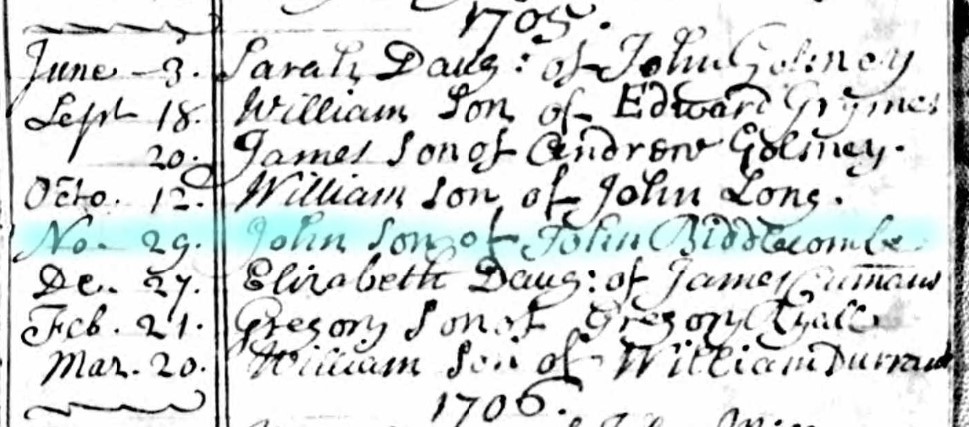 1705.
June 3. Sarah Daug: of John Golsney
Sept 18. William Son of Edward Grymes
20. James Son of Andrew Golsney.
Octo. 12. William Son of John Long.
No. 29. John Son of John Biddlecombe
De. 27. Elizabeth Daug: of James
Feb. 21. Gregory Son of Gregory Ryall
Mar. 20. William Son of William Durrant
1706.